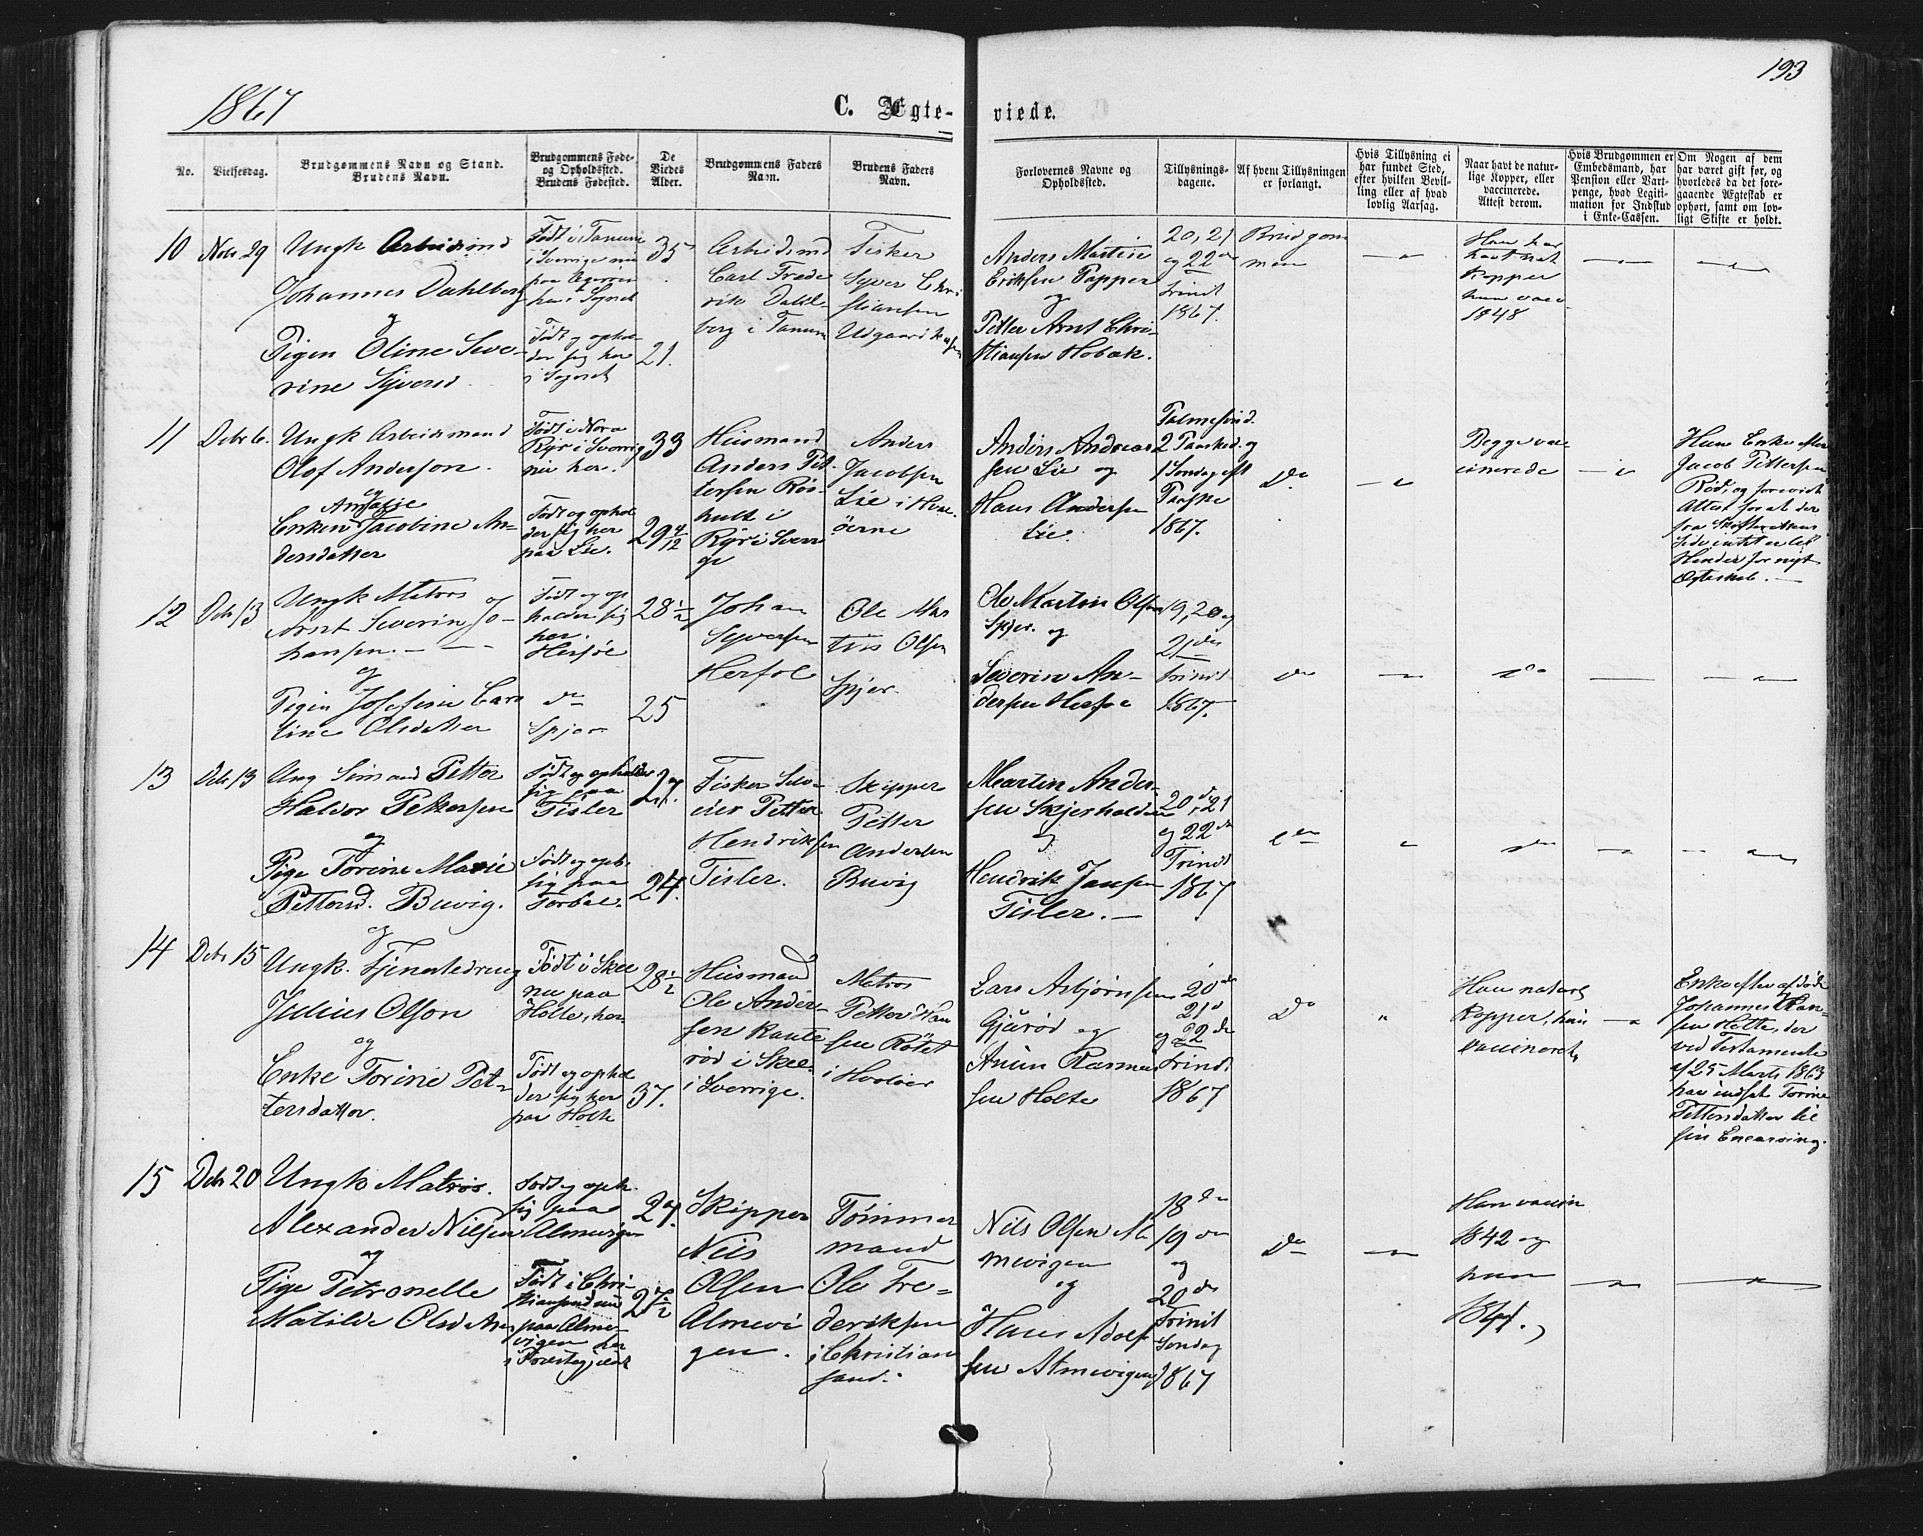 1867
193
C. Ægte-
viede.
No.
Vielsesdag.
Brudgommens Navn og Stand.
Brudens Navn.
Brudgommens Føde-
og Opholdssted.
Brudens Fødested.
De
Viedes
Alder.
Brudgommens Faders
Navn.
Brudens Faders
Navn.
Forlovernes Navne og
Opholdssted.
Tillysnings-
dagene.
Af hvem Tillysningen
er forlangt.
Hvis Tillysning ei
har fundet Sted,
efter hvilken Bevil-
ling eller af hvad
lovlig Aarsag.
Naar havt de natur-
lige Kopper, eller
vaccinerede.
Attest derom.
Hvis Brudgommen er
Embedsmand, har
Pension eller Vart-
penge, hvad Legiti-
mation for Indskud
i Enke-Cassen.
Om Nogen af dem
har været gift før, og
hvorledes da det fore-
gaaende Ægteskab er
ophørt, samt om lov-
ligt Skifte er holdt.
10
Nobr 29
Ungk Arbeidsmd
Johannes Dahlberg
og
Pigen Oline Seve-
rine Syversd.
Født i Tanum
i Sverrige nu
paa
her i Sognet
Født og ophol-
der sig her
i Sognet
35
21.
Arbeidsmd
Carl Frede
rik Dahl-
berg i Tanum
Fisker
Syver Chri
stiansen
Udgaardkilen
Anders Martin
Eriksen Papper
og
Petter Arnt Chri-
stiansen Hobæk.
20, 21
og 22de
Trinit
1867.
Brudgom
men
Han har
havt nat
Kopper
hun vacc
1848
11
Debr 6.
Ungk Arbeidsmand
Olof Anderson.
og
Amalie
Enken Jacobine An-
dersdatter
Født i Nora
Ryr i Sverrig
nu her.
Født og ophol
der sig her
paa Lie.
33
29 4/12
Huusmand
Anders Pet-
tersen Røs-
hult i
Ryr i Sverr
ge
Anders
Jacobsen
Lie i Hval
øerne
Anders Andreas
sen Lie og
Hans Andersen
Lie.
Palmesønd.
2 Paasked. og
1 Søndag eft
Paaske
1867.
Do
Begge vac
cinerede
Hun Enke efter
Jacob Pettersen
Rød, og foreviist
Attest for at der
fra Skifterettens
Side intet er til
Hinder for nyt
Ægteskab.
12
Debr 13
Ungk Matros
Arnt Severin Jo-
hansen.
og
Pigen Josefine Caro
line Olsdatter
Født og op
holder sig
her.
Herføl
do
Spjær
28 1/2
25
Johan
Syversen
Herføl
Ole Mar
tius Olsen
Spjær.
Ole Martin Olsen
Spjær. og
Severin An-
dersen Herføl
19, 20 og
21de
Trinit
1867.
do
do
13
Debr 13
Ung Sømand Petter
Haldor Pettersen
og
Pige Torine Marie
Pettersd. Buvig.
Født og opholder
sig paa
Tisler
Født og oph.
sig paa
Torbal.
27.
24.
Fisker
Petter
Hendriksen
Tisler.
Skipper
Petter
Andersen
Buvig
Martin Ander-
sen Skjærhalden
og
Hendrik Jansen
Tisler.
20d, 21
og 22de
Trinit
1867
do
do
14
Debr 15
og
Ungk. Tjenestedreng
Julius Olson
og
Enke Torine Pet-
tersdatter.
Født i Skee
nu paa
Holte, her
Født og ophol
der sig her
paa Holte
28 1/2
37.
Huusmand
Ole Ander-
sen Raute
rød i Skee
i Sverrige.
Matros
Petter Han
sen Rødet
i Hvaløer
Lars Asbjørnsen
Gjürød og
Anün Rasmu
sen Holte
20de
21d
og 22de
Trinit
1867
Do
Han naturl
Kopper, hun
vaccineret
Enke efter afdøde
Johannes Han-
sen Holte, der
ved Testamente
af 25 Marts 1863
har indsat Torine
Pettersdatter til
sin Enearving.
15
Debr 20
Ungk Matros.
Alexander Nilsen
og
Pige Petronelle
Matilde Olsdatter
Født og oph.
sig paa
Almevigen
Født i Chri-
stiansand nu
paa Alme-
vigen her
i Præstegjeldt
27.
27 1/2
Skipper
Nils
Olsen
Almevi
gen.
Tømmer
mand
Ole Fre-
deriksen
i Christian
sand.
Nils Olsen Al
mevigen
og
Hans Adolf
sen Almevigen
18de
19de
og
20de
Trinit
Søndag
1867
Do
Han vaccin
1842 og
hun